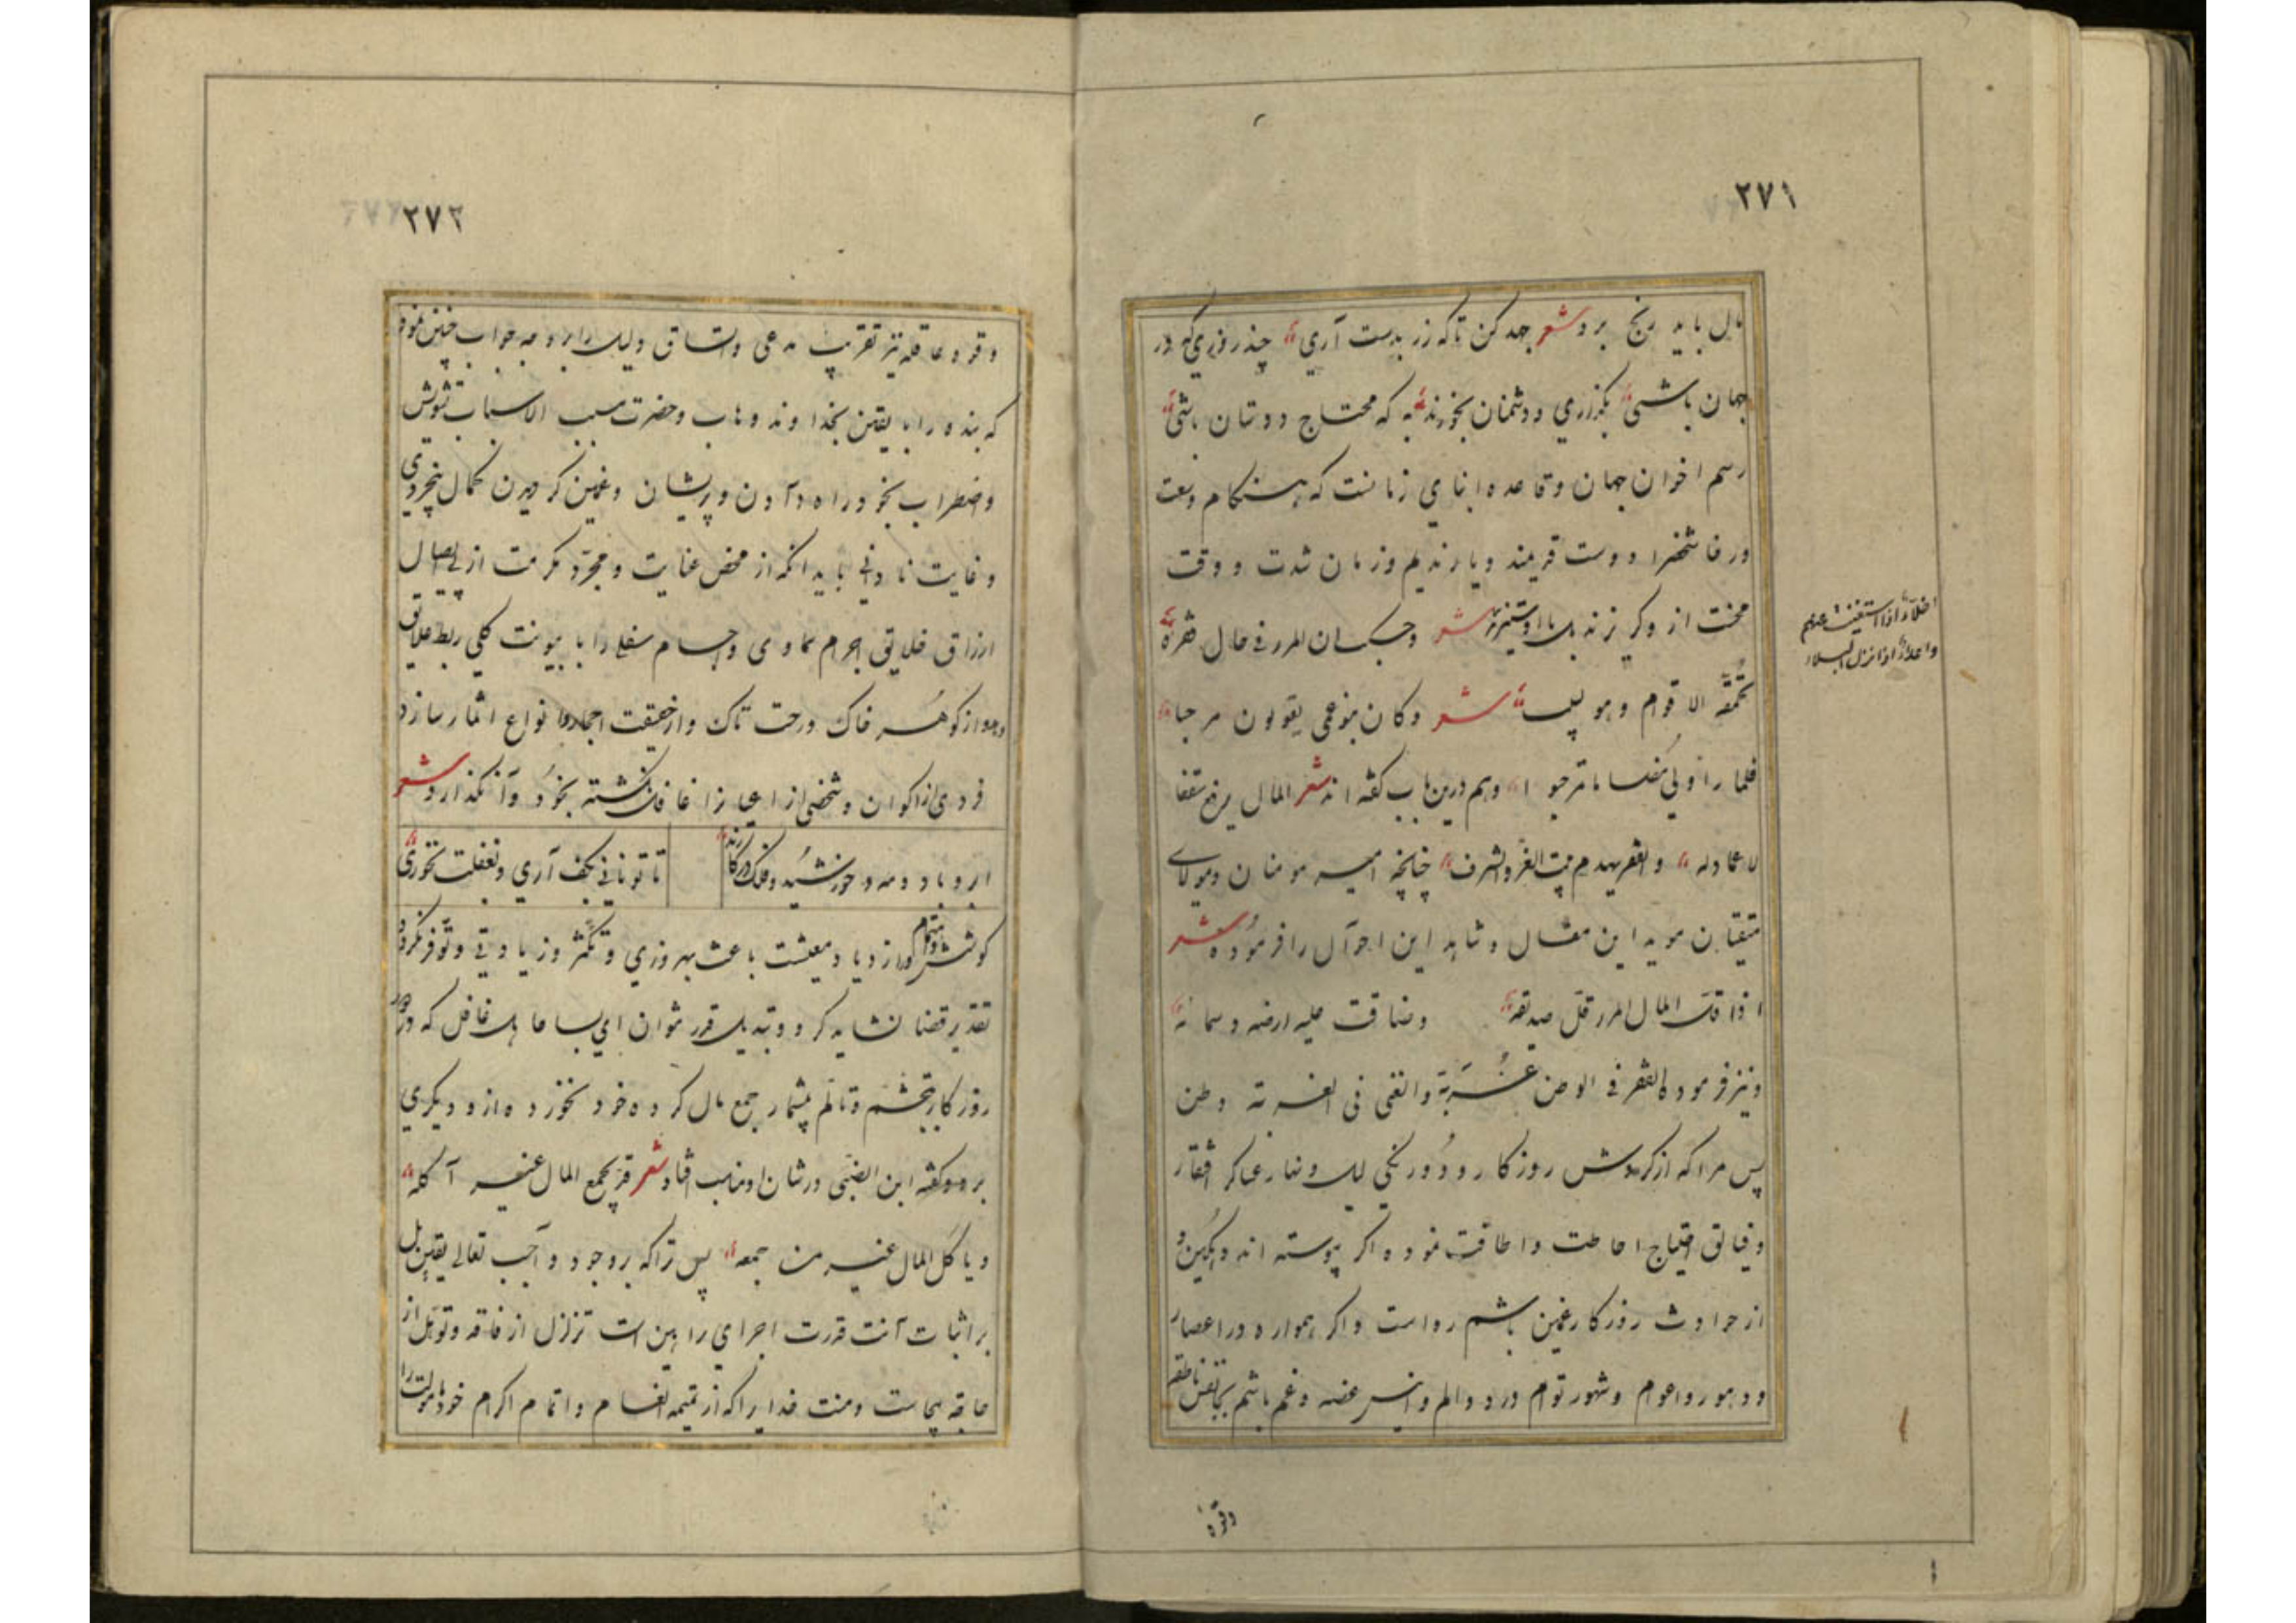 ٢٧١
مال باید رنج برد شعر جهد کن تا که زر بدست آری چند روزی که در
جهان باشی بگذاری و دشمنان بخورند به که محتاج دوستان باشی
رسم اخوان جهان و قاعده ابنای زمانست که هنگام وسعت
و رفا شخصرا دوست قریبند و یار ندیم و زمان شدت و وقت
محنت از وگریزند بل با او ستیزند شعر و حسبان المرء فی حال
تحمقه الاقوام وهو لبیب شعر وکان بنو عمی یقولون مرحبا
فلما راونی مفلسا مات مرحب و هم درین باب گفته اند شعر المال یرفع سقفا
لا عماد له والفقر یهدم بیت العز والشرف چنانچه امیر مومنان و مولای
متقیان موید این مقال و شاهد این احوال را فرموده شعر
اذا قل المال المرء قل صدیقه وضاقت علیه ارضه وسمائه
و نیز فرموده الفقر فی الوطن غربة والغنی فی الغربة وطن
پس مرا که از گردش روزگار و دورنگی لیل و نهار عساکر افتقار
و فیالق احتیاج احاطت و اطاقت نموده اگر پیوسته اندوهگین و
از حوادث روزگار غمین باشم رواست و اگر همواره در اعصار
و دهور و اعوام و شهور توام درد و الم و انیس غصه و غم باشم بجا نفس ناطقه
اخلاء اذا استغنیت عنهم
واعداء اذا نزل البلاء
وقوه
٢٧٢
و قوه عاقله نیز تقریب مدعی و اتساق دلیل را بر وجه جواب چنین نمود
که بنده را با یقین بخداوند وهاب و حضرت مسبب الاسباب تشویش
و اضطراب بخود راه دادن و پریشان و غمین گردیدن کمال بیخردی
و غایت نادانی باید انکه از محض عنایت و مجرد مکرمت از پی ایصال
ارزاق خلایق اجرام سماوی و اجسام سفلی را با بینونت کلی ربط علایق
دهد و از گوهر خاک درخت تاک و از حقیقت احجار انواع اثمار سازد
فردی از اکوان و شخصی از اعیان را غافل نگشته بخود وا نگذارد شعر
ابر و باد و مه و خورشید و فلک در کارند
تا تو نانی بکف آری و بغفلت نخوری
کوشش و اهتمام در ازدیاد معیشت باعث بهروزی و تکثر و زیادتی و توفر نگردد
تقدیر قضا نشاید کرد و تبدیل قدر نتوان ای بسا جاهل غافل که در
روزگار بتجشم و تالم بیشمار جمع مال کرده خود نخورده از و دیگری
برد و گفته ابن الضبی در شان او مناسب افتاد شعر قد یجمع المال غیر آکله
ویاکل المال غیر من جمعه پس ترا که بر وجود واجب تعالی یقین بل
بر اثبات آنت قدرت اجرای براهین است تزلزل از فاقه و توهل از
عاقبه بیجاست و منت خدایرا که از تتمیمه انعام و اتمام اکرام خود